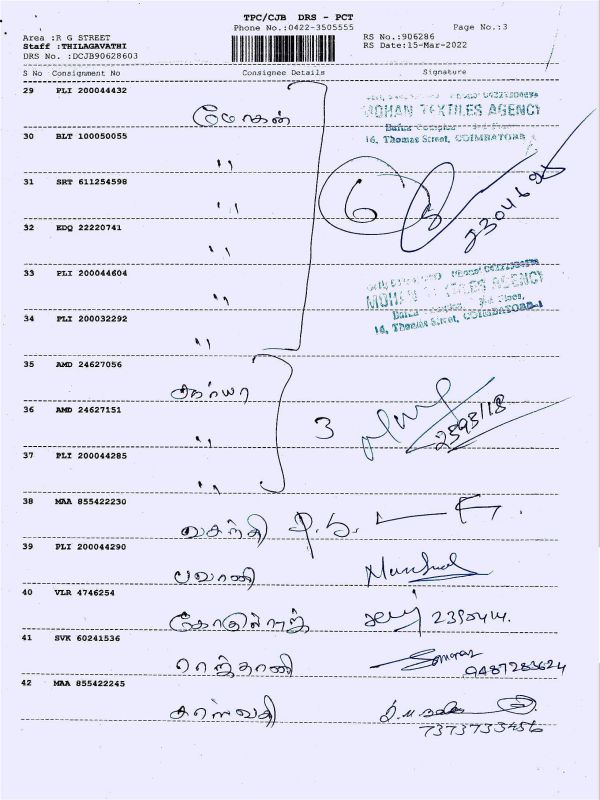 TPC/CJB DRS - PCT
Phone No.:0422-3505555
Page No.:3
Area :R G STREET
RS No.:906286
Staff :THILAGAVATHI
RS Date:15-Mar-2022
DRS No. :DCJB90628603
S No Consignment No Consignee Details Signature
29 PLI 200044432
மோகன்
MOHAN TEXTILES AGENCY
16, Thomas Street, COIMBATORE
30 BLT 100050055
,,
31 SRT 611254598
,,
6
32 EDQ 22220741
,,
33 PLI 200044604
,,
MOHAN TEXTILES AGENCY
16, Thomas Street, COIMBATORE-1
34 PLI 200032292
,,
35 AMD 24627056
36 AMD 24627151
,,
3
2393118
37 PLI 200044285
,,
38 MAA 855422230
வசந்தி
39 PLI 200044290
பவானி
40 VLR 4746254
41 SVK 60241536
9487283624
42 MAA 855422245
7373733456